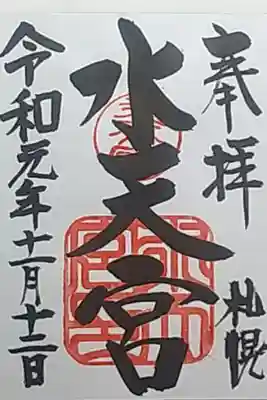 奉拝
札幌
水天宮
令和元年十一月十三日